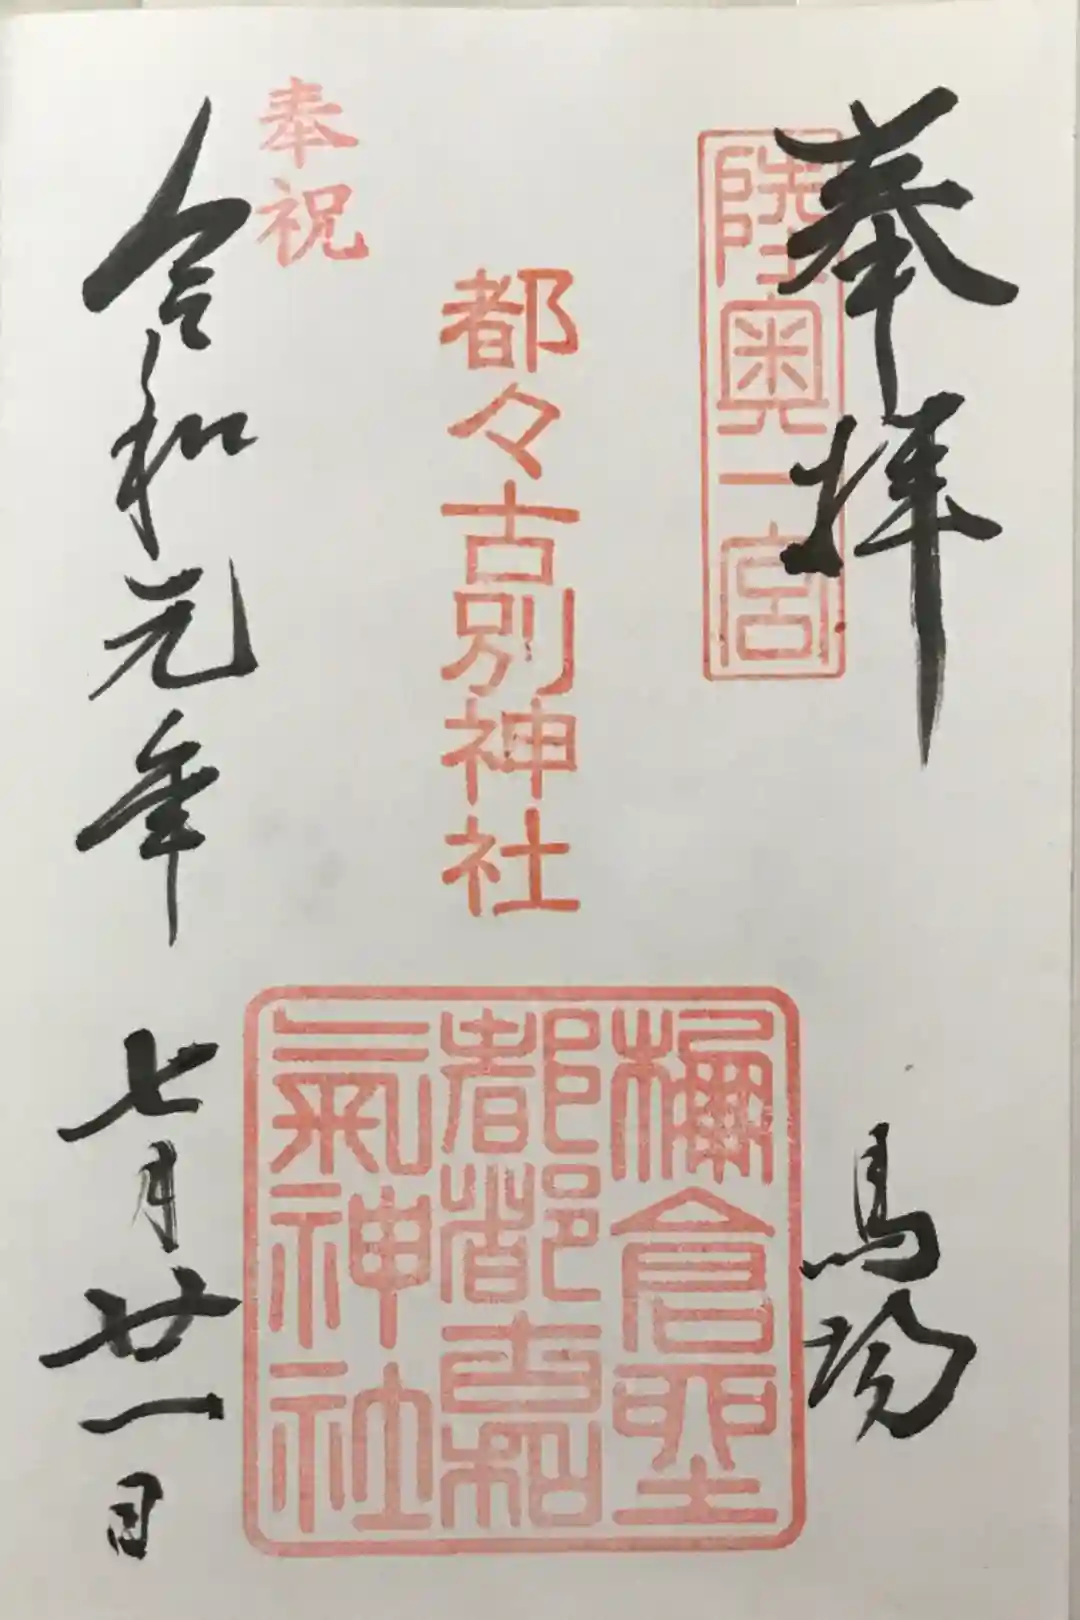 奉拝
陸奥一宮
馬場
都々古別神社
倉
都都古和
氣神社
奉祝
令和元年 七月廿一日